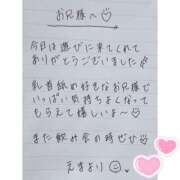 お兄様へ♡
今日は遊びに来てくれて
ありがとうございました
乳首舐め好きなお兄様で
いっぱい気持ちよくなっ
てもらえて嬉しいま〜♡
また飲み会の時ぜひ♡
えまより